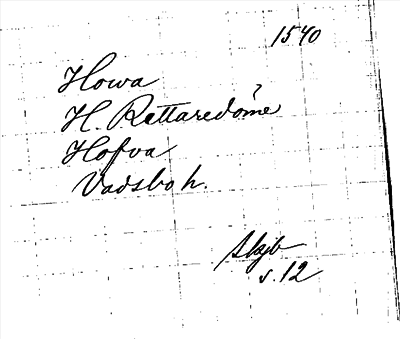 1540
Howa
H. Rettaredöme
Hofva
Vadsbo h.
Skjb
s. 12